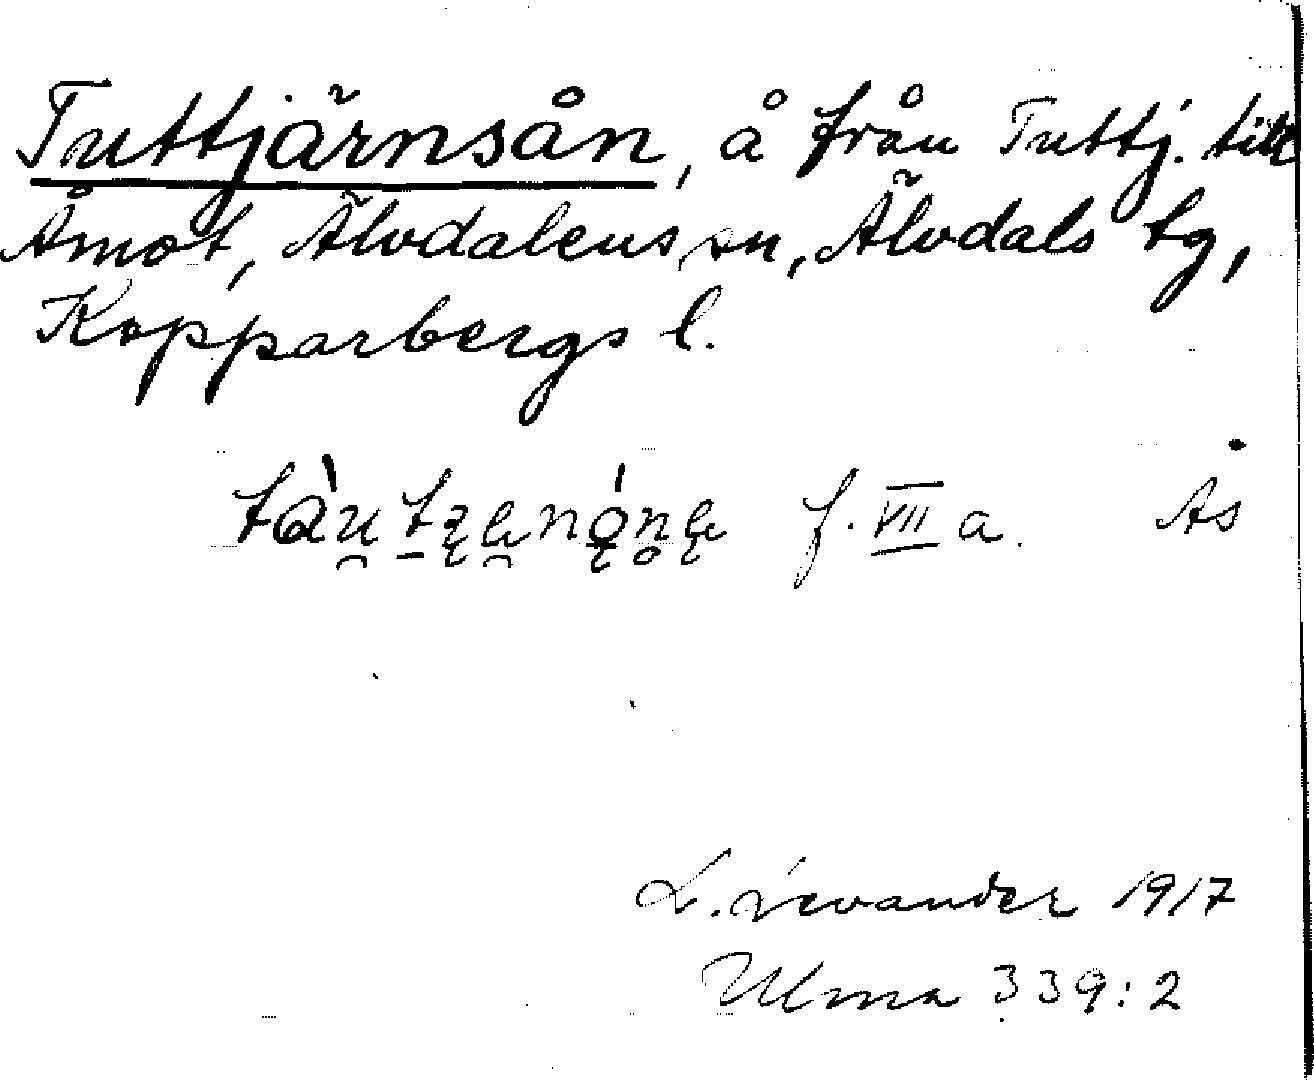 Tuttjärnsån, å från Tuttj. till
Åmot, Älvdalens sn, Älvdals tg,
Kopparbergs l.
f. VII a. Ås
L. Levander 1917
Ulma 339:2